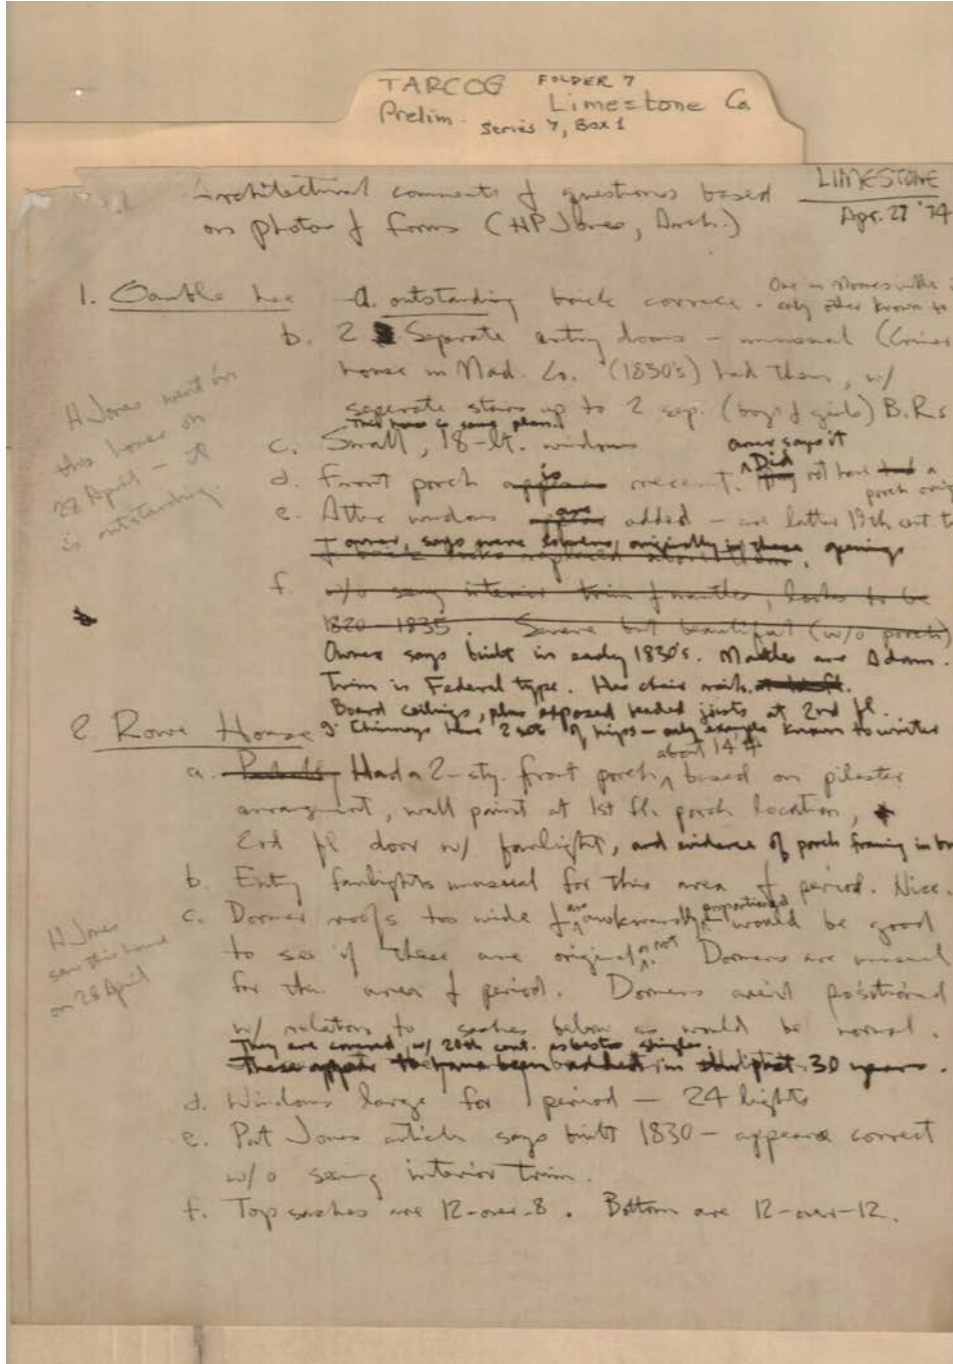 TARCOG FOLDER 7
Prelim. Limestone Co
Series 7, Box 1
LIMESTONE
Apr. 27 '74
Architectural comments & questions based
on photos & forms (HP Jones, Arch.)
1. Hse a. outstanding brick cornice. One in
only other known to
b. 2 Separate entry doors – unusual (
house in Mad. Co. (1830's) had them, w/
separate stairs up to 2 sep. (boys & girls) B.R.s
This house is same plan.
c. Small, 18-lt. windows
owner says it
d. Front porch is recent. Did not have a
porch orig
e. Attic windows are added – are latter 19th cent
owner, says were louvers, originally in these openings
f. w/o seeing interior trim & mantles, looks to be
1820–1835. Severe but beautiful (w/o porch)
Owner says built in early 1830's. Mantles are Adam.
Trim is Federal type. Has chair rails.
Board ceilings, plus exposed beaded joists at 2nd fl.
g. Chimneys have 2 sets of – only example known to writer
H Jones went in
this home on
28 April – it
is outstanding.
2. Rowe House
about 14 ft
a. Probably Had a 2-sty. front porch, based on pilaster
arrangment, wall paint at 1st flr. porch location,
2nd fl door w/ fanlight, and evidence of porch framing in
b. Entry fanlights unusual for this area & period. Nice.
c. Dormer roofs too wide & are awkwardly proportioned would be good
to see if these are original or not. Dormers are unusual
for this area & period. Dormers aren't positioned
w/ relation to sashes below as would be normal.
They are covered w/ 20th cent. asbestos shingles.
These appear to have been added in the past 30 years.
d. Windows large for period – 24 lights
e. Pat Jones article says built 1830 – appears correct
w/o seeing interior trim.
f. Top sashes are 12-over-8. Bottom are 12-over-12.
H Jones
saw this home
on 28 April